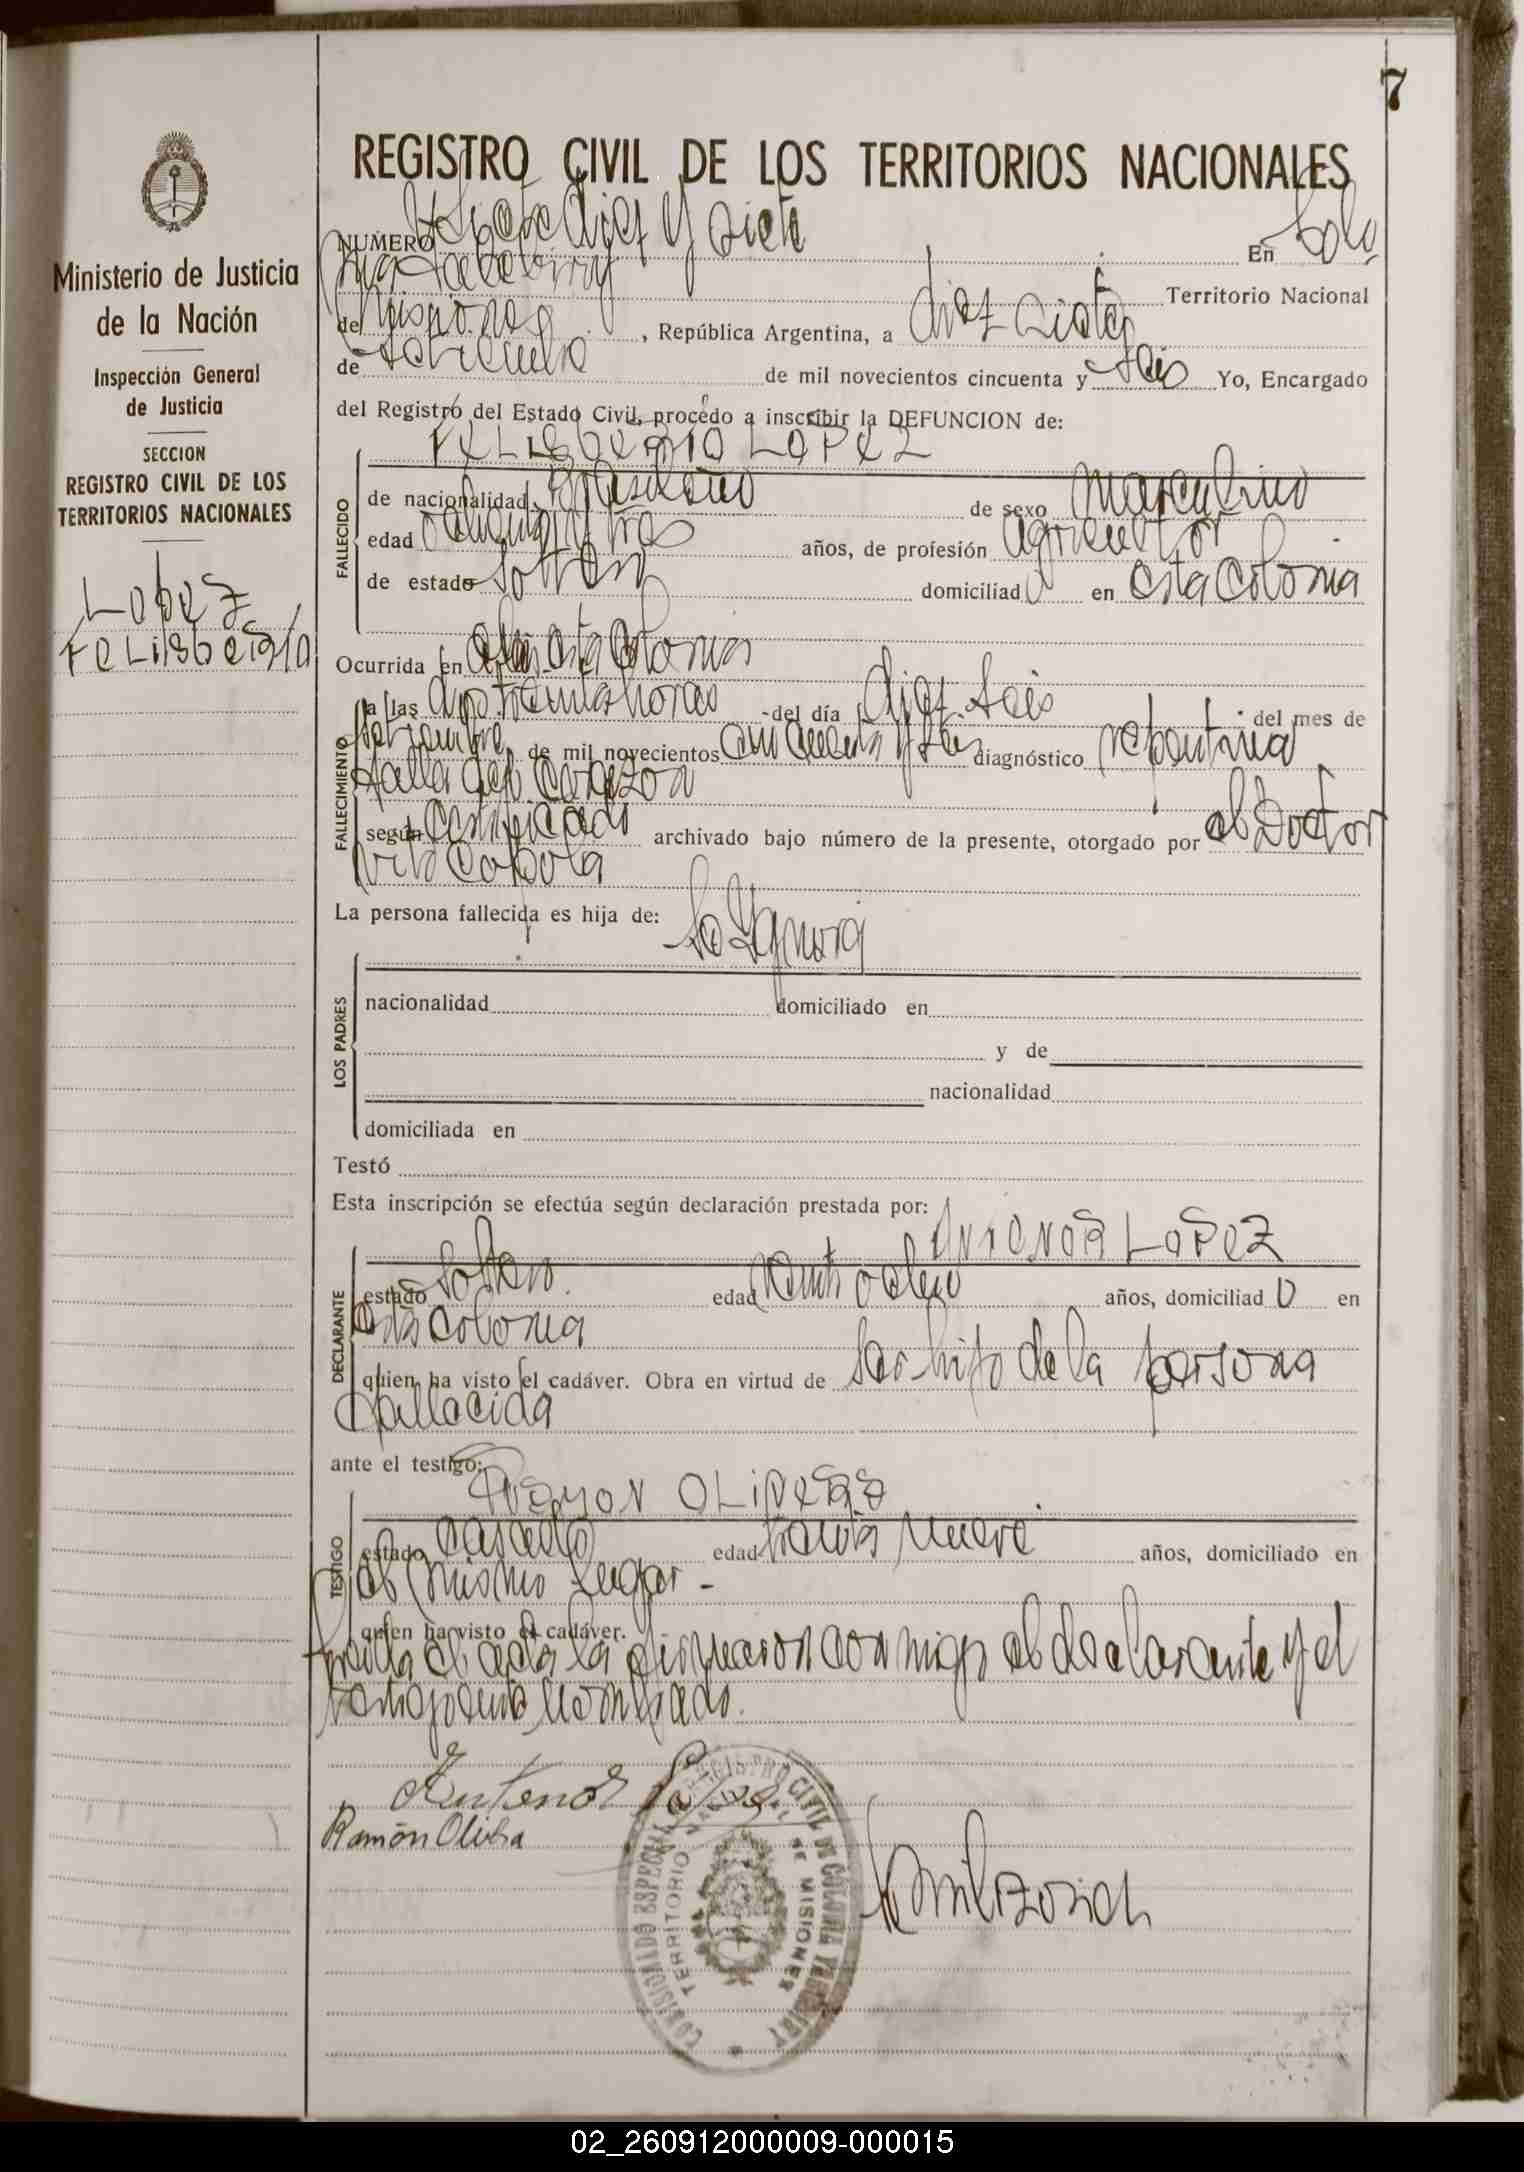 7
REGISTRO CIVIL DE LOS TERRITORIOS NACIONALES
Ministerio de Justicia
de la Nación
Inspección General
de Justicia
SECCION
REGISTRO CIVIL DE LOS
TERRITORIOS NACIONALES
Lopez
NUMERO siete diez y siete En Colo
nia Territorio Nacional
de Misiones, República Argentina, a diez siete
de setiembre de mil novecientos cincuenta y seis Yo, Encargado
del Registro del Estado Civil, procedo a inscribir la DEFUNCION de:
LOPEZ
FALLECIDO
de nacionalidad Brasileño de sexo masculino
edad ochenta y tres años, de profesión agricultor
de estado soltero domiciliado en esta colonia
Ocurrida en esta colonia
FALLECIMIENTO
a las treinta horas del día diez seis del mes de
setiembre de mil novecientos cincuenta y seis diagnóstico repentina
falla del corazon
según certificado archivado bajo número de la presente, otorgado por el Doctor
La persona fallecida es hija de: Se Ygnora
LOS PADRES
nacionalidad domiciliado en
y de
nacionalidad
domiciliada en
Testó
Esta inscripción se efectúa según declaración prestada por:
ANTENOR LOPEZ
DECLARANTE
estado soltero edad años, domiciliado en
esta colonia
quien ha visto el cadáver. Obra en virtud de ser hijo de la persona
fallecida
ante el testigo:
Ramon
TESTIGO
estado casado edad treinta nueve años, domiciliado en
el mismo lugar -
quien ha visto el cadáver.
el acta la firmaron conmigo el declarante y el
testigo nombrado.
Antenor
Ramón
COMISIONADO ESPECIAL REGISTRO CIVIL DE COLONIA
TERRITORIO NACIONAL DE MISIONES
02_260912000009-000015